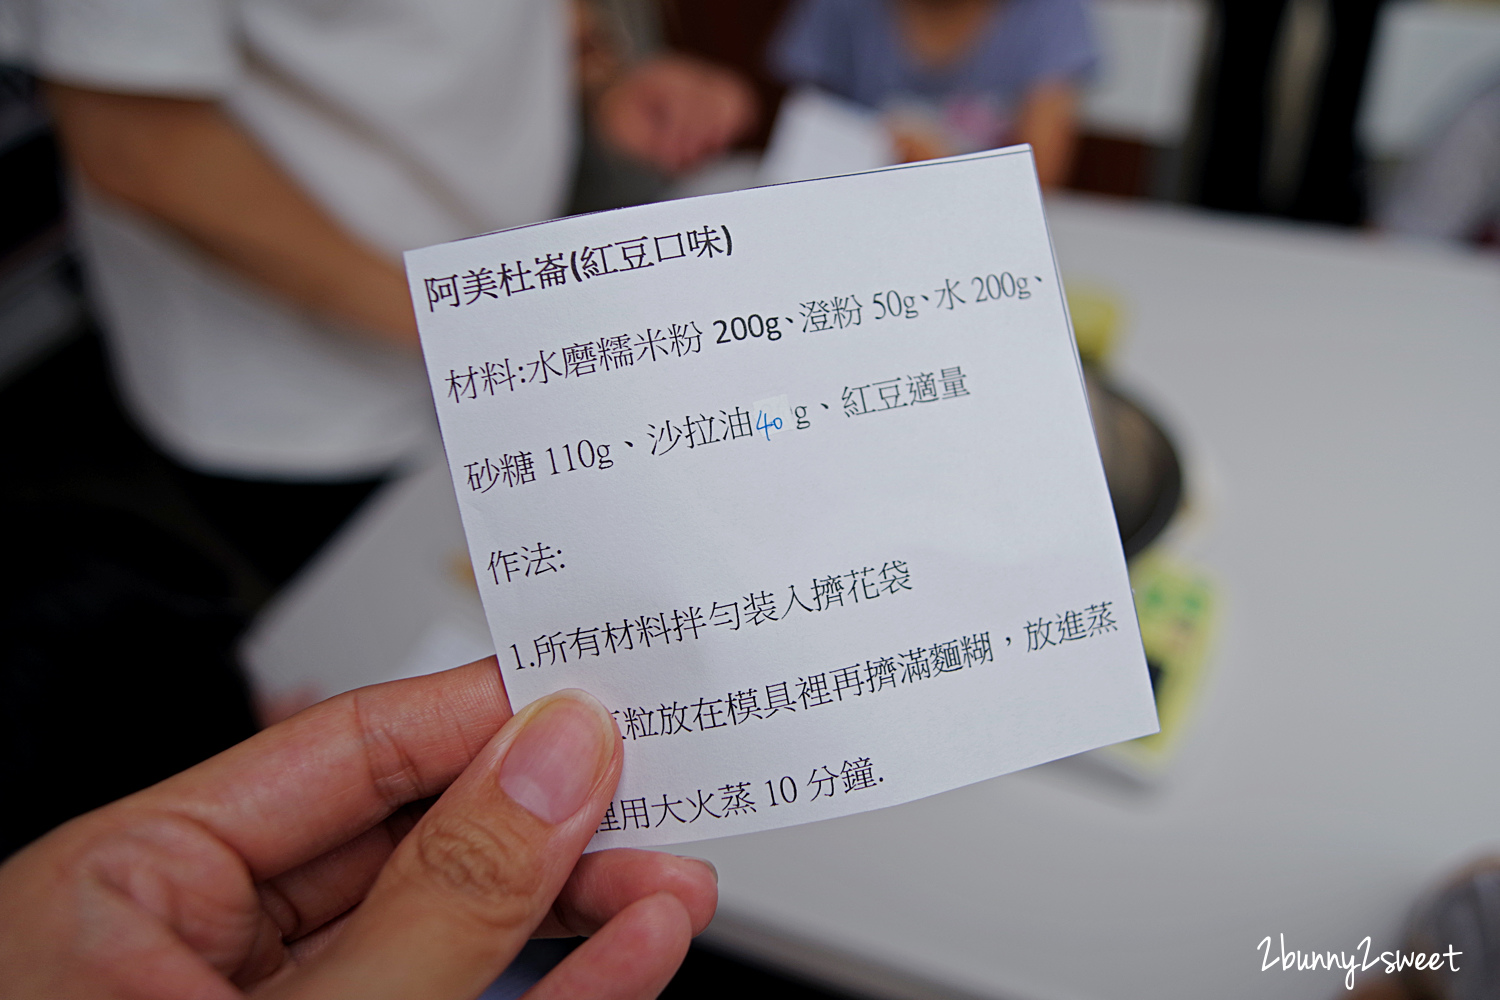 阿美杜崙(紅豆口味)
材料:水磨糯米粉 200g、澄粉 50g、水 200g、
砂糖 110g、沙拉油40g、紅豆適量
作法:
1.所有材料拌勻裝入擠花袋
粒放在模具裡再擠滿麵糊，放進蒸
用大火蒸 10 分鐘.
2bunny2sweet